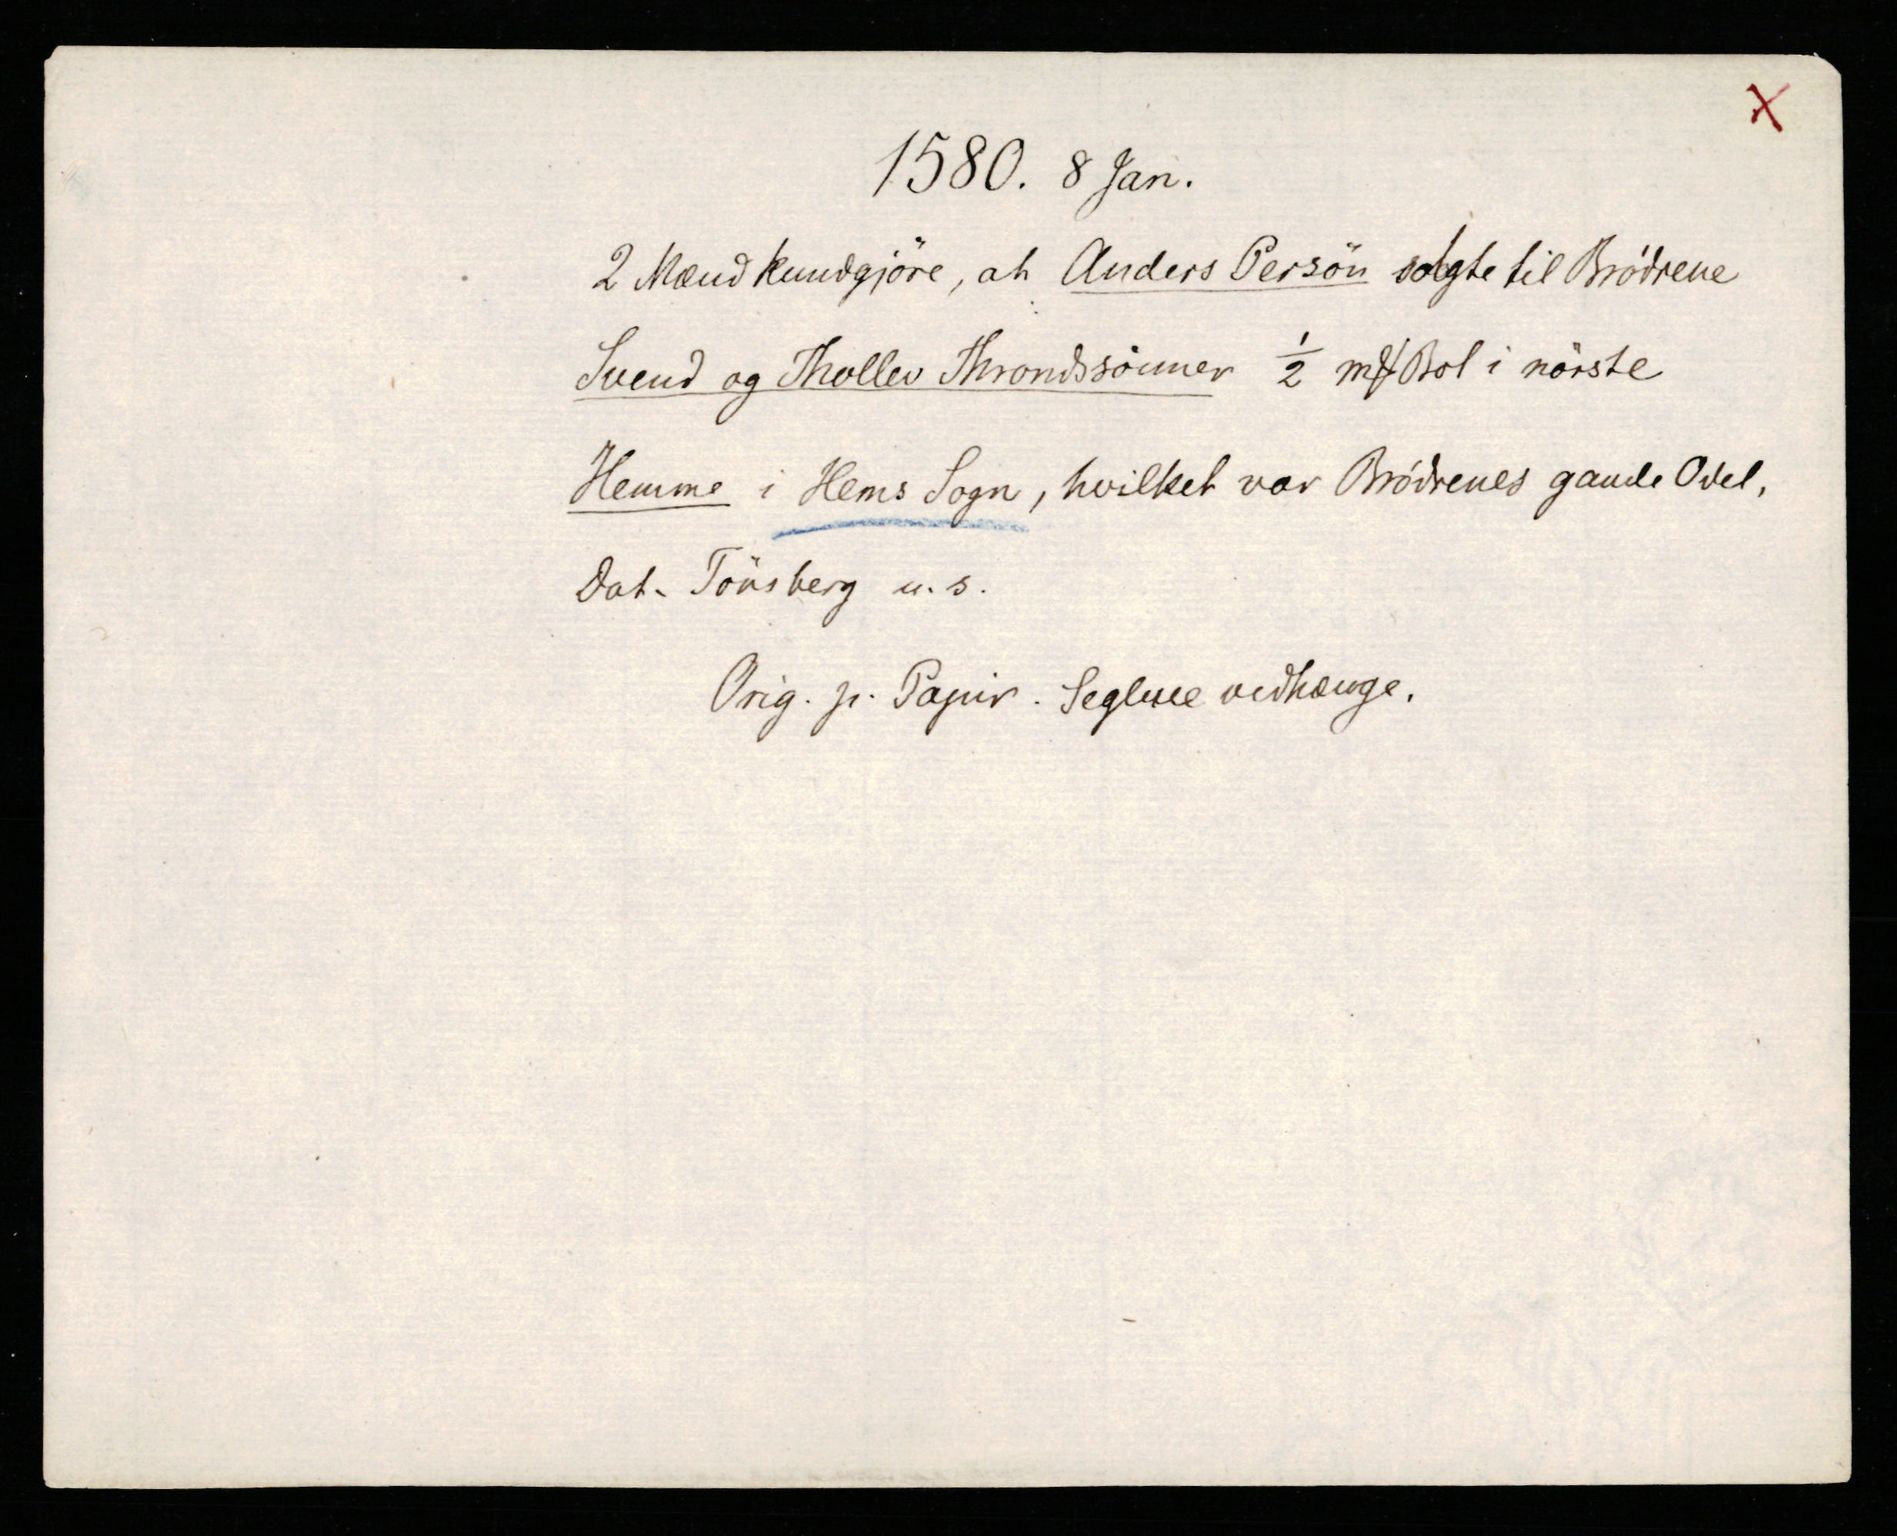 X
1580. 8 Jan.
2 Mænd kundgjöre, at Anders Persön solgte til Brödrene
Svend og Thollev Throndssönner ½ m# Bol i nörste
Hemme i Hems Sogn, hvilket var Brödrenes gamle Odel,
Dat. Tönsberg u. s.
Orig. p. Papir. Seglene vedhænge.